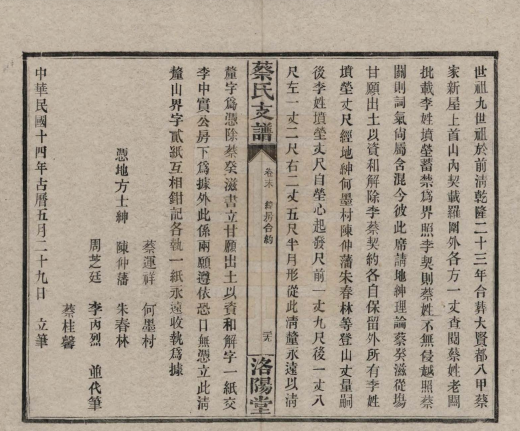 世祖九世祖於前淸乾隆二十三年合葬大賢都八甲蔡
家新屋上首山內契載羅圍外各方一丈查閱蔡姓老䦰
批載李姓墳塋蓄禁爲界照李契則蔡姓不無侵越照蔡
䦰則詞氣尙屬含混今彼此席請地紳理論蔡癸滋從塲
甘願出土以資和解除李蔡契約各自保留外所有李姓
墳塋丈尺經地紳何墨村陳仲藩朱春林等登山丈量嗣
後李姓墳塋丈尺自塋心起發尺前一丈九尺後一丈八
尺左一丈二尺右二丈五尺半月形從此淸釐永遠以淸
蔡氏支譜
卷末
合約
洛陽堂
釐字爲憑除蔡癸滋書立甘願出土以資和解字一紙交
李申實公房下爲據外此係兩願遵依恐口無憑立此淸
釐山界字貳紙互相錯記各執一紙永遠收執爲據
蔡運祥 何墨村
憑地方士紳 陳仲藩 朱春林
周芝廷 李丙烈 並代筆
蔡桂馨
中華民國十四年古曆五月二十九日 立筆